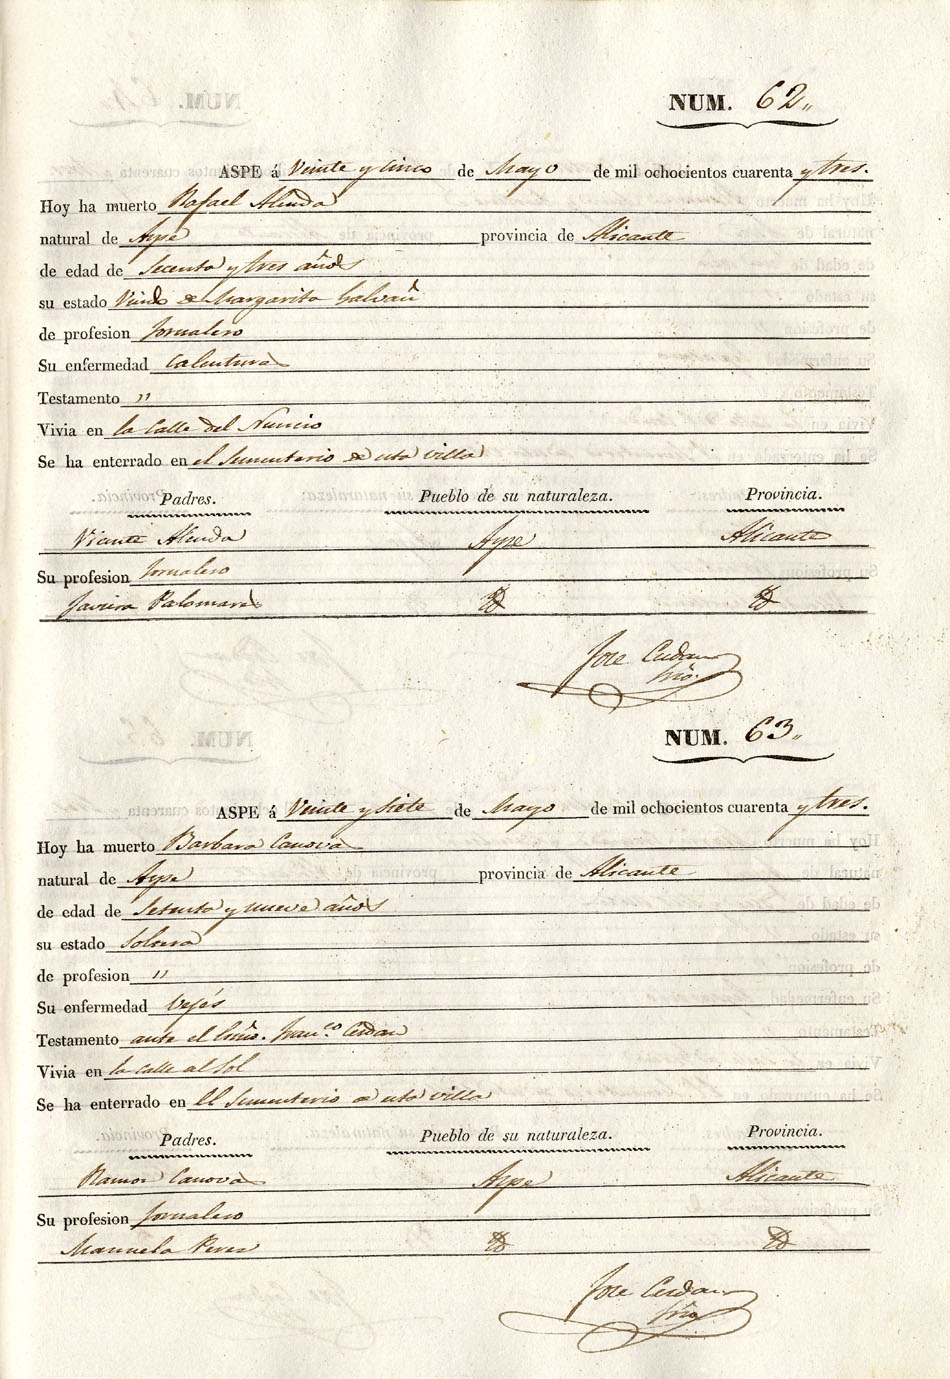 NUM. 62,,
ASPE á Veinte y cinco de Mayo de mil ochocientos cuarenta y tres.
Hoy ha muerto Rafael Alenda
natural de Aspe provincia de Alicante
de edad de Secenta y tres años
su estado Viudo de Margarita Galvañ
de profesion Jornalero
Su enfermedad Calentura
Testamento ,,
Vivia en la Calle del Nuncio
Se ha enterrado en el Sementerio de esta villa
Padres. Pueblo de su naturaleza. Provincia.
Vicente Alenda Aspe Alicante
Su profesion Jornalero
Javiera Palomares Yd Yd
Jose Cerdan
Srio.
NUM. 63,,
ASPE á Veinte y Siete de Mayo de mil ochocientos cuarenta y tres.
Hoy ha muerto Barbara Canova
natural de Aspe provincia de Alicante
de edad de Setenta y nueve años
su estado Soltera
de profesion ,,
Su enfermedad Vejés
Testamento ante el Franco. Cerdan
Vivia en la Calle al Sol
Se ha enterrado en El Sementerio de esta villa
Padres. Pueblo de su naturaleza. Provincia.
Ramon Canova Aspe Alicante
Su profesion Jornalero
Manuela Peres Yd Yd
Jose Cerdan
Srio